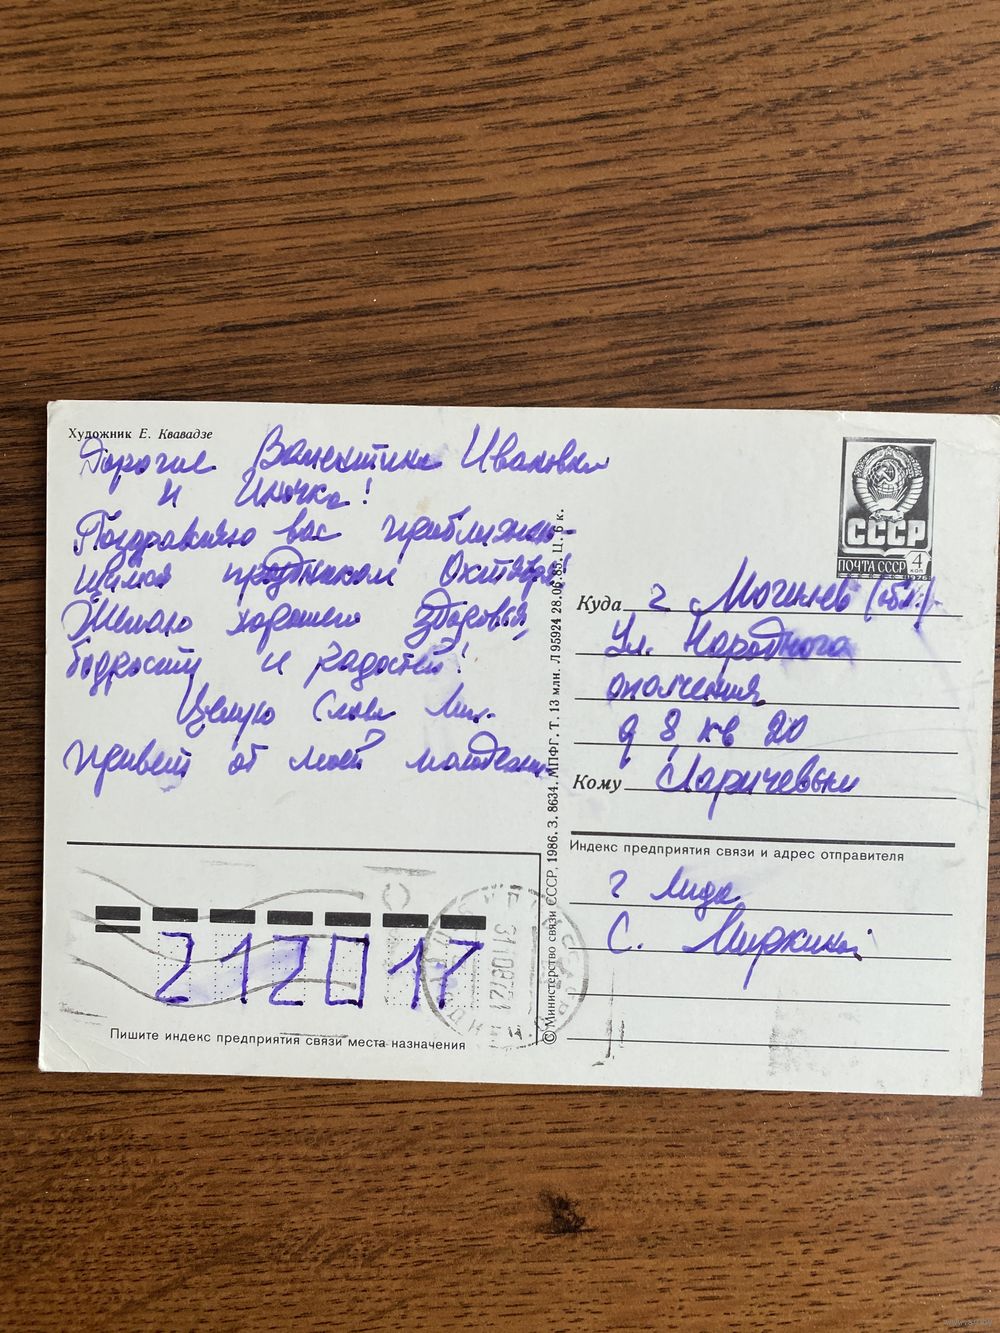 Художник Е. Квавадзе
Дорогие Валентина Ивановна
и Иночка!
Поздравляю вас приближаю-
щимся праздником Октября!
Желаю хорошего здоровья,
бодрости и радостей!
Целую Слава
Привет от моей молодежи.
СССР
ПОЧТА СССР 4 коп
1976
Куда г Могилев (обл.)
ул. Народного
ополчения
д 8 кв 20
Кому Ларичевым
Индекс предприятия связи и адрес отправителя
г Лида
С. Миркиной
212017
Пишите индекс предприятия связи места назначения
© Министерство связи СССР, 1986. З. 8634. МПФГ. Т. 13 млн. Л 95924 28.06.85. П. 6 к.